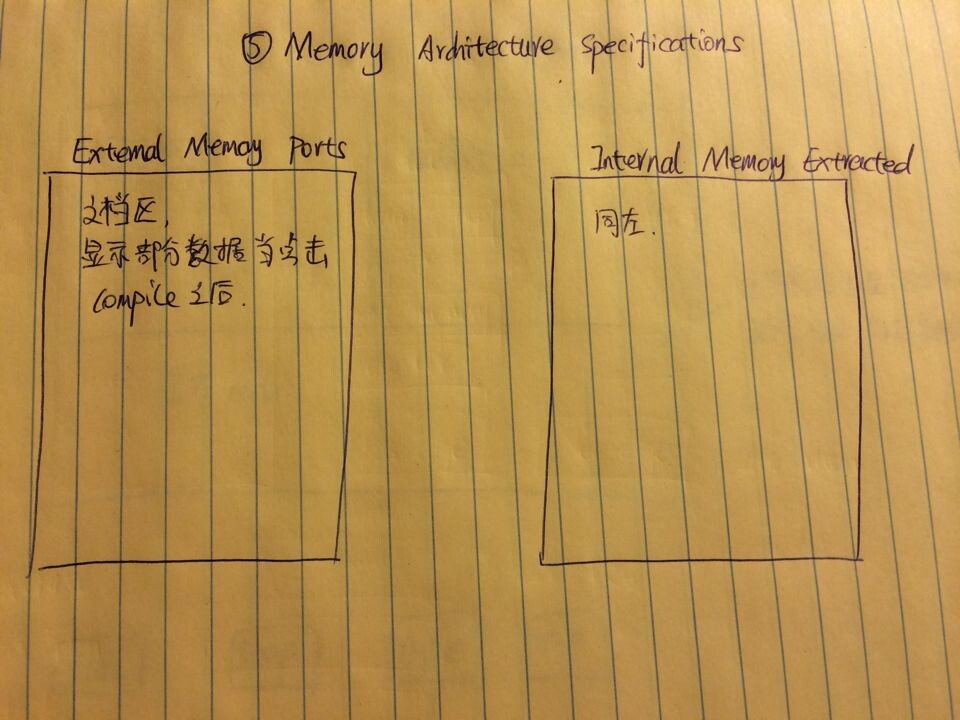 ⑤ Memory Architecture Specifications
External Memory Ports
文档区,
显示部分数据当点击
compile 之后.
Internal Memory Extracted
同左.